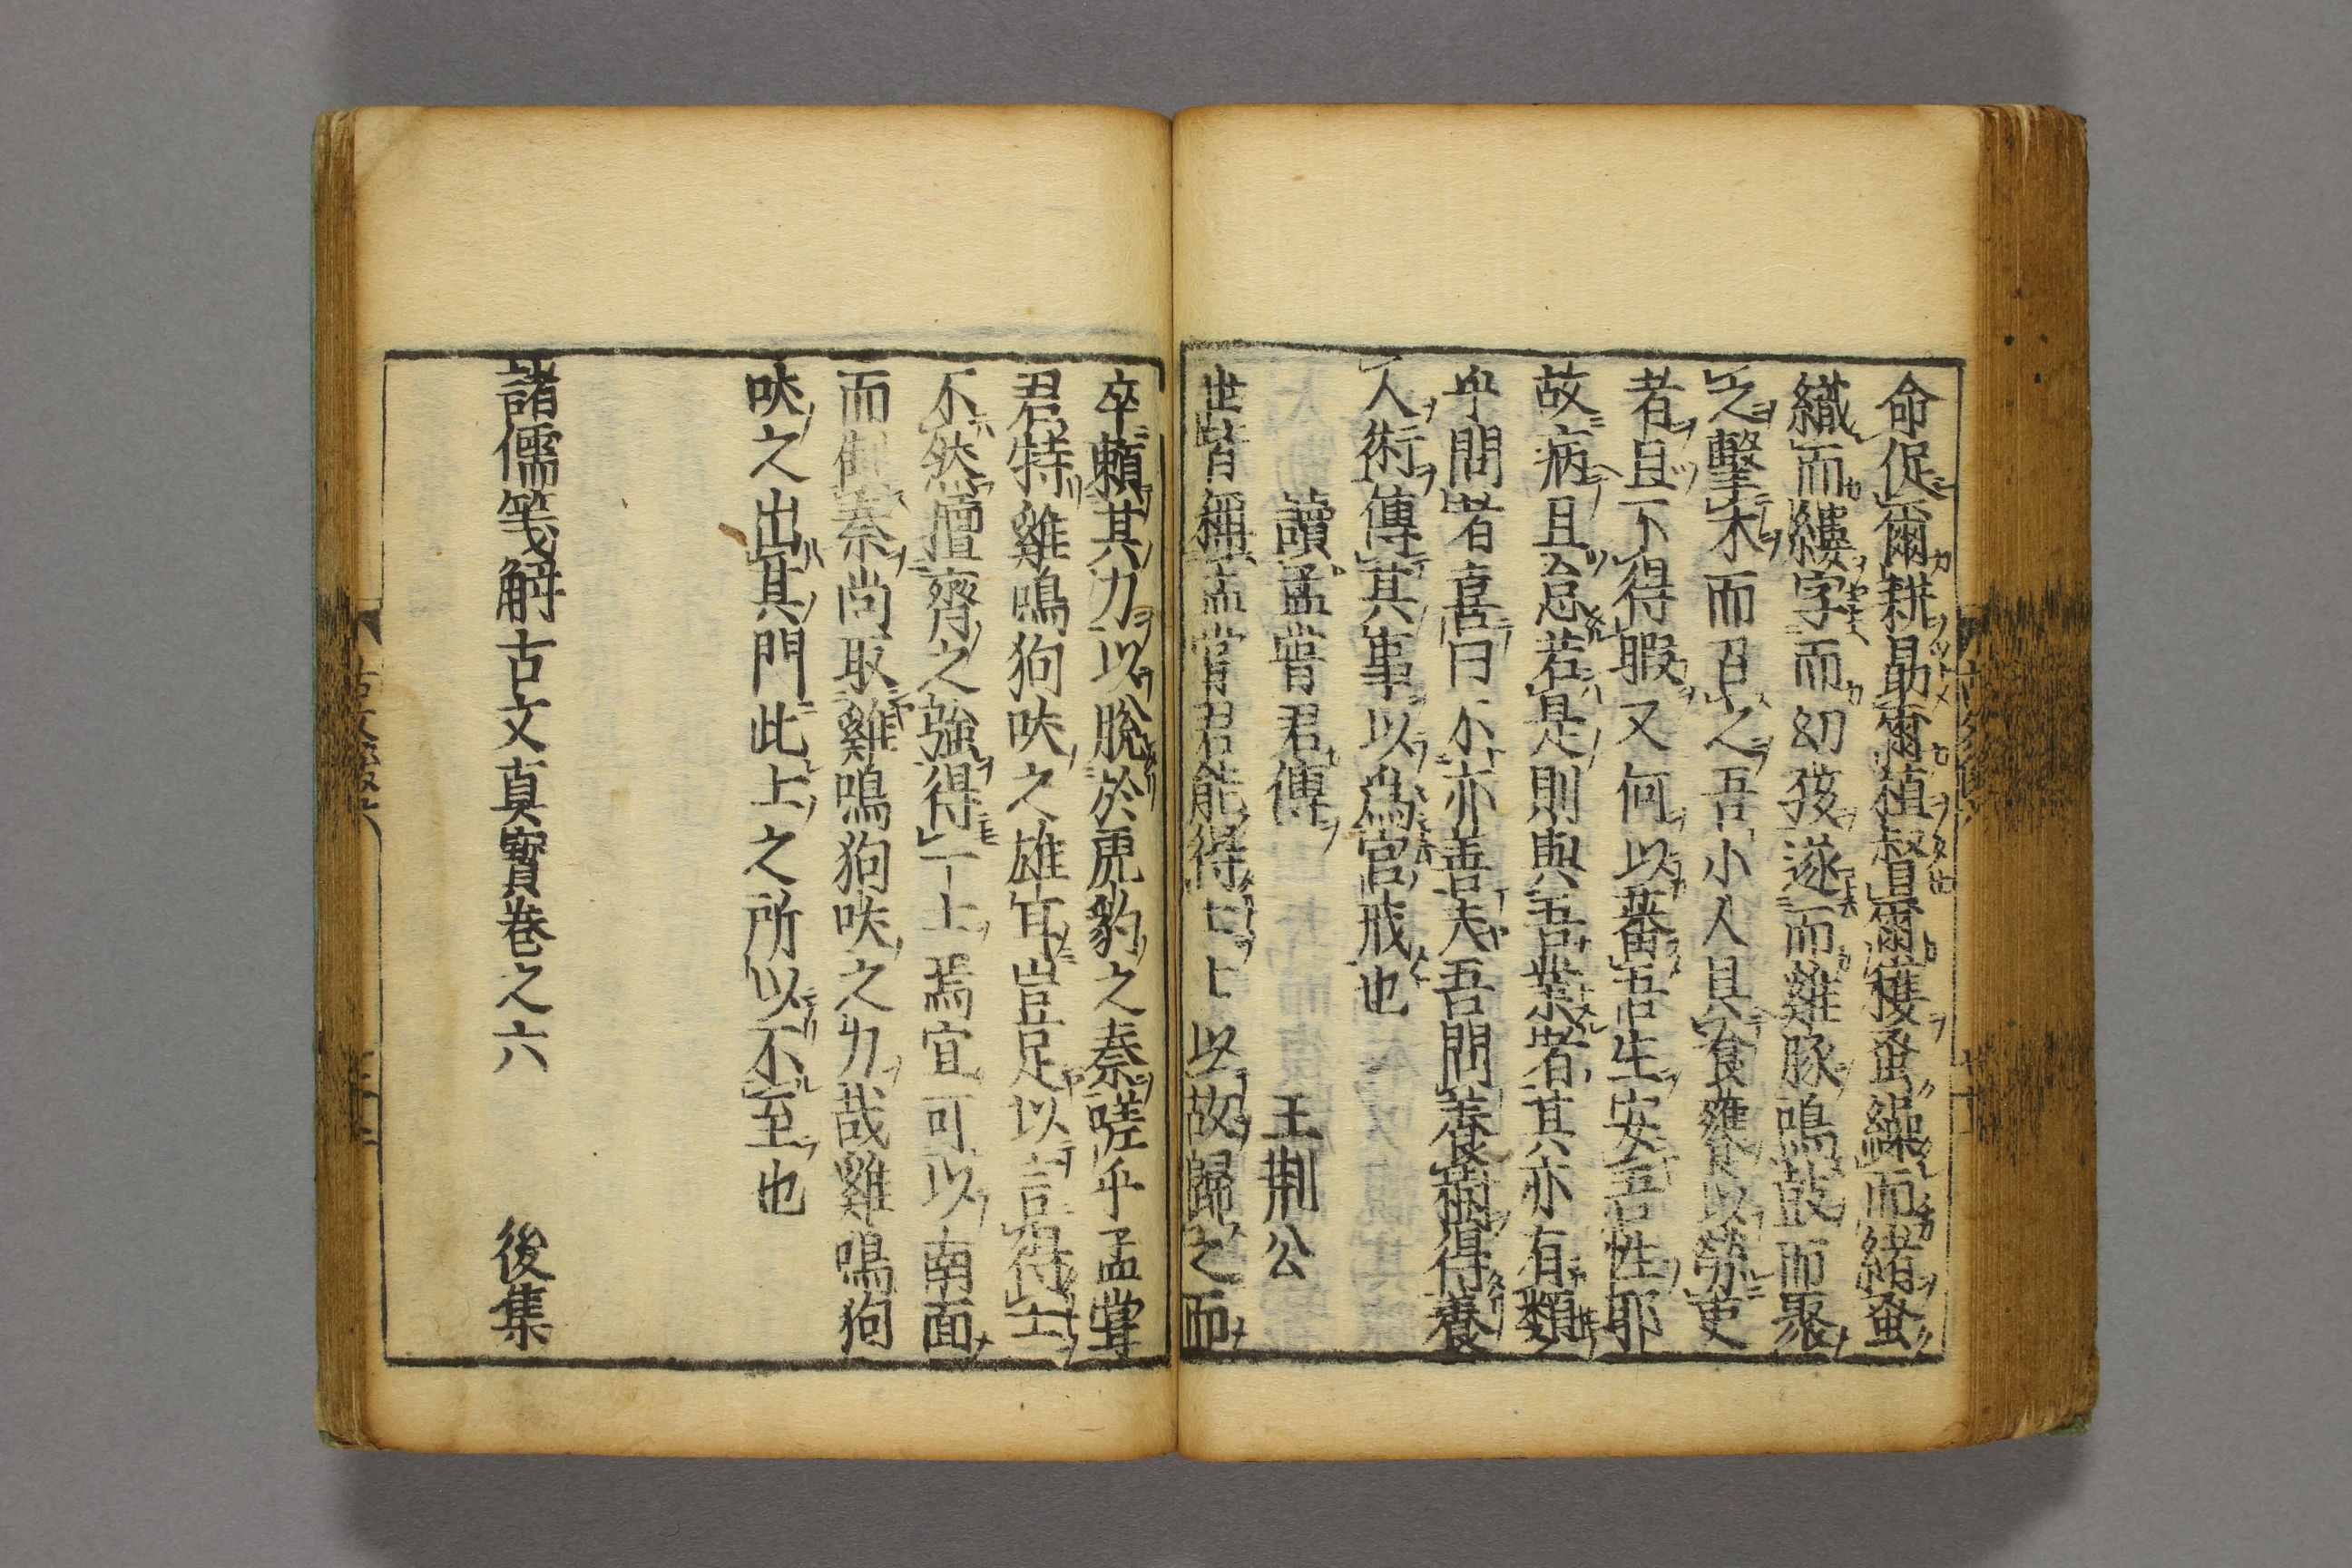 命促爾耕勗爾植督爾穫蚤繰而緒蚤
織而縷字而幼孩遂而雞豚鳴鼓而聚
之擊木而召之吾小人具飧饔以勞吏
者且不得暇又何以蕃吾生安吾性耶
故病且怠若是則與吾業者其亦有類
乎問者喜曰不亦善夫吾問養樹得養
人術傳其事以爲官戒也
讀孟嘗君傳 王荆公
世皆稱孟嘗君能得士士以故歸之而
卒賴其力以脫於虎豹之秦嗟乎孟嘗
君特雞鳴狗吠之雄耳豈足以言得士
不然擅齊之強得一士焉宜可以南面
而制秦尚取雞鳴狗吠之力哉雞鳴狗
吠之出其門此士之所以不至也
諸儒箋解古文真寶卷之六 後集